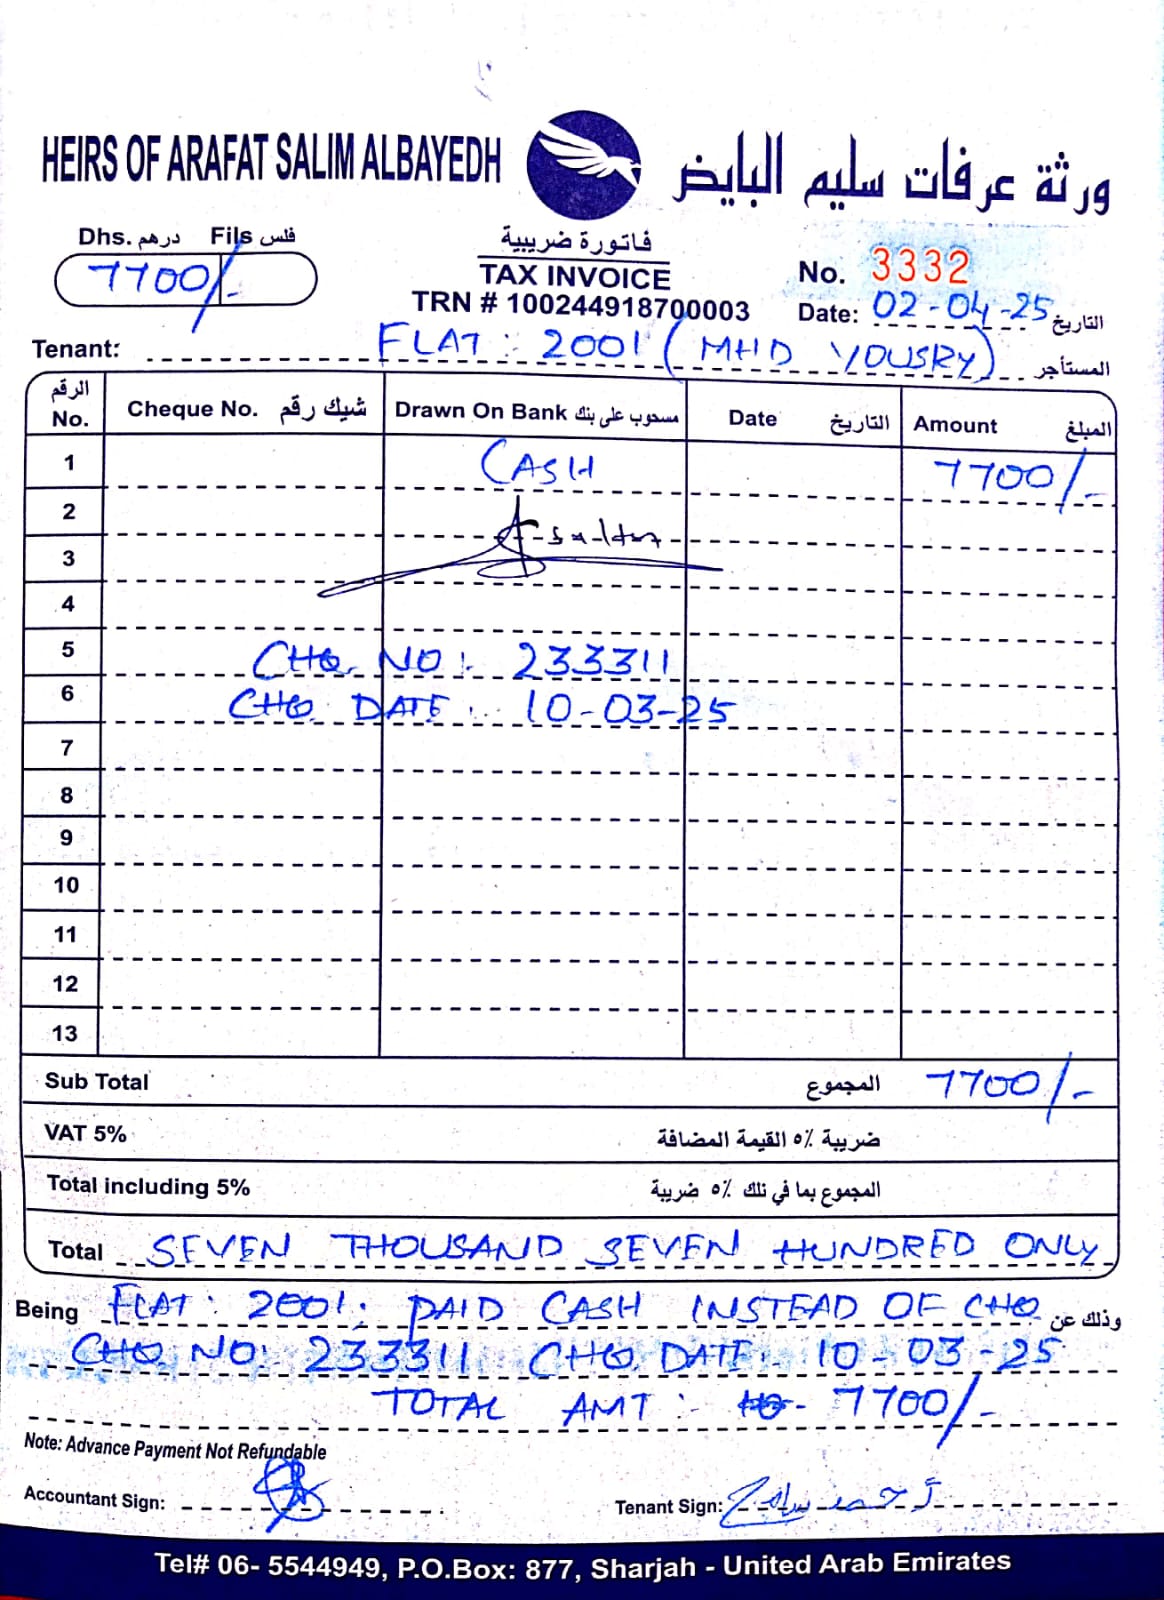 HEIRS OF ARAFAT SALIM ALBAYEDH ورثة عرفات سليم البايض
Dhs. درهم Fils فلس
7700/-
فاتورة ضريبية
TAX INVOICE
TRN # 100244918700003
No. 3332
Date: 02-04-25 التاريخ
Tenant: FLAT: 2001 (MHD YOUSRY) المستأجر
الرقم No. Cheque No. شيك رقم Drawn On Bank مسحوب على بنك Date التاريخ Amount المبلغ
1 CASH 7700/-
2
3
4
5 CHQ. NO:. 233311
6 CHQ. DATE:. 10-03-25
7
8
9
10
11
12
13
Sub Total المجموع 7700/-
VAT 5% ضريبة ٥٪ القيمة المضافة
Total including 5% المجموع بما في ذلك ٥٪ ضريبة
Total SEVEN THOUSAND SEVEN HUNDRED ONLY
Being FLAT: 2001. PAID CASH INSTEAD OF CHQ وذلك عن
CHQ NO: 233311 CHQ. DATE:. 10-03-25
TOTAL AMT:- 7700/-
Note: Advance Payment Not Refundable
Accountant Sign:
Tenant Sign: أحمد سامح
Tel# 06- 5544949, P.O.Box: 877, Sharjah - United Arab Emirates